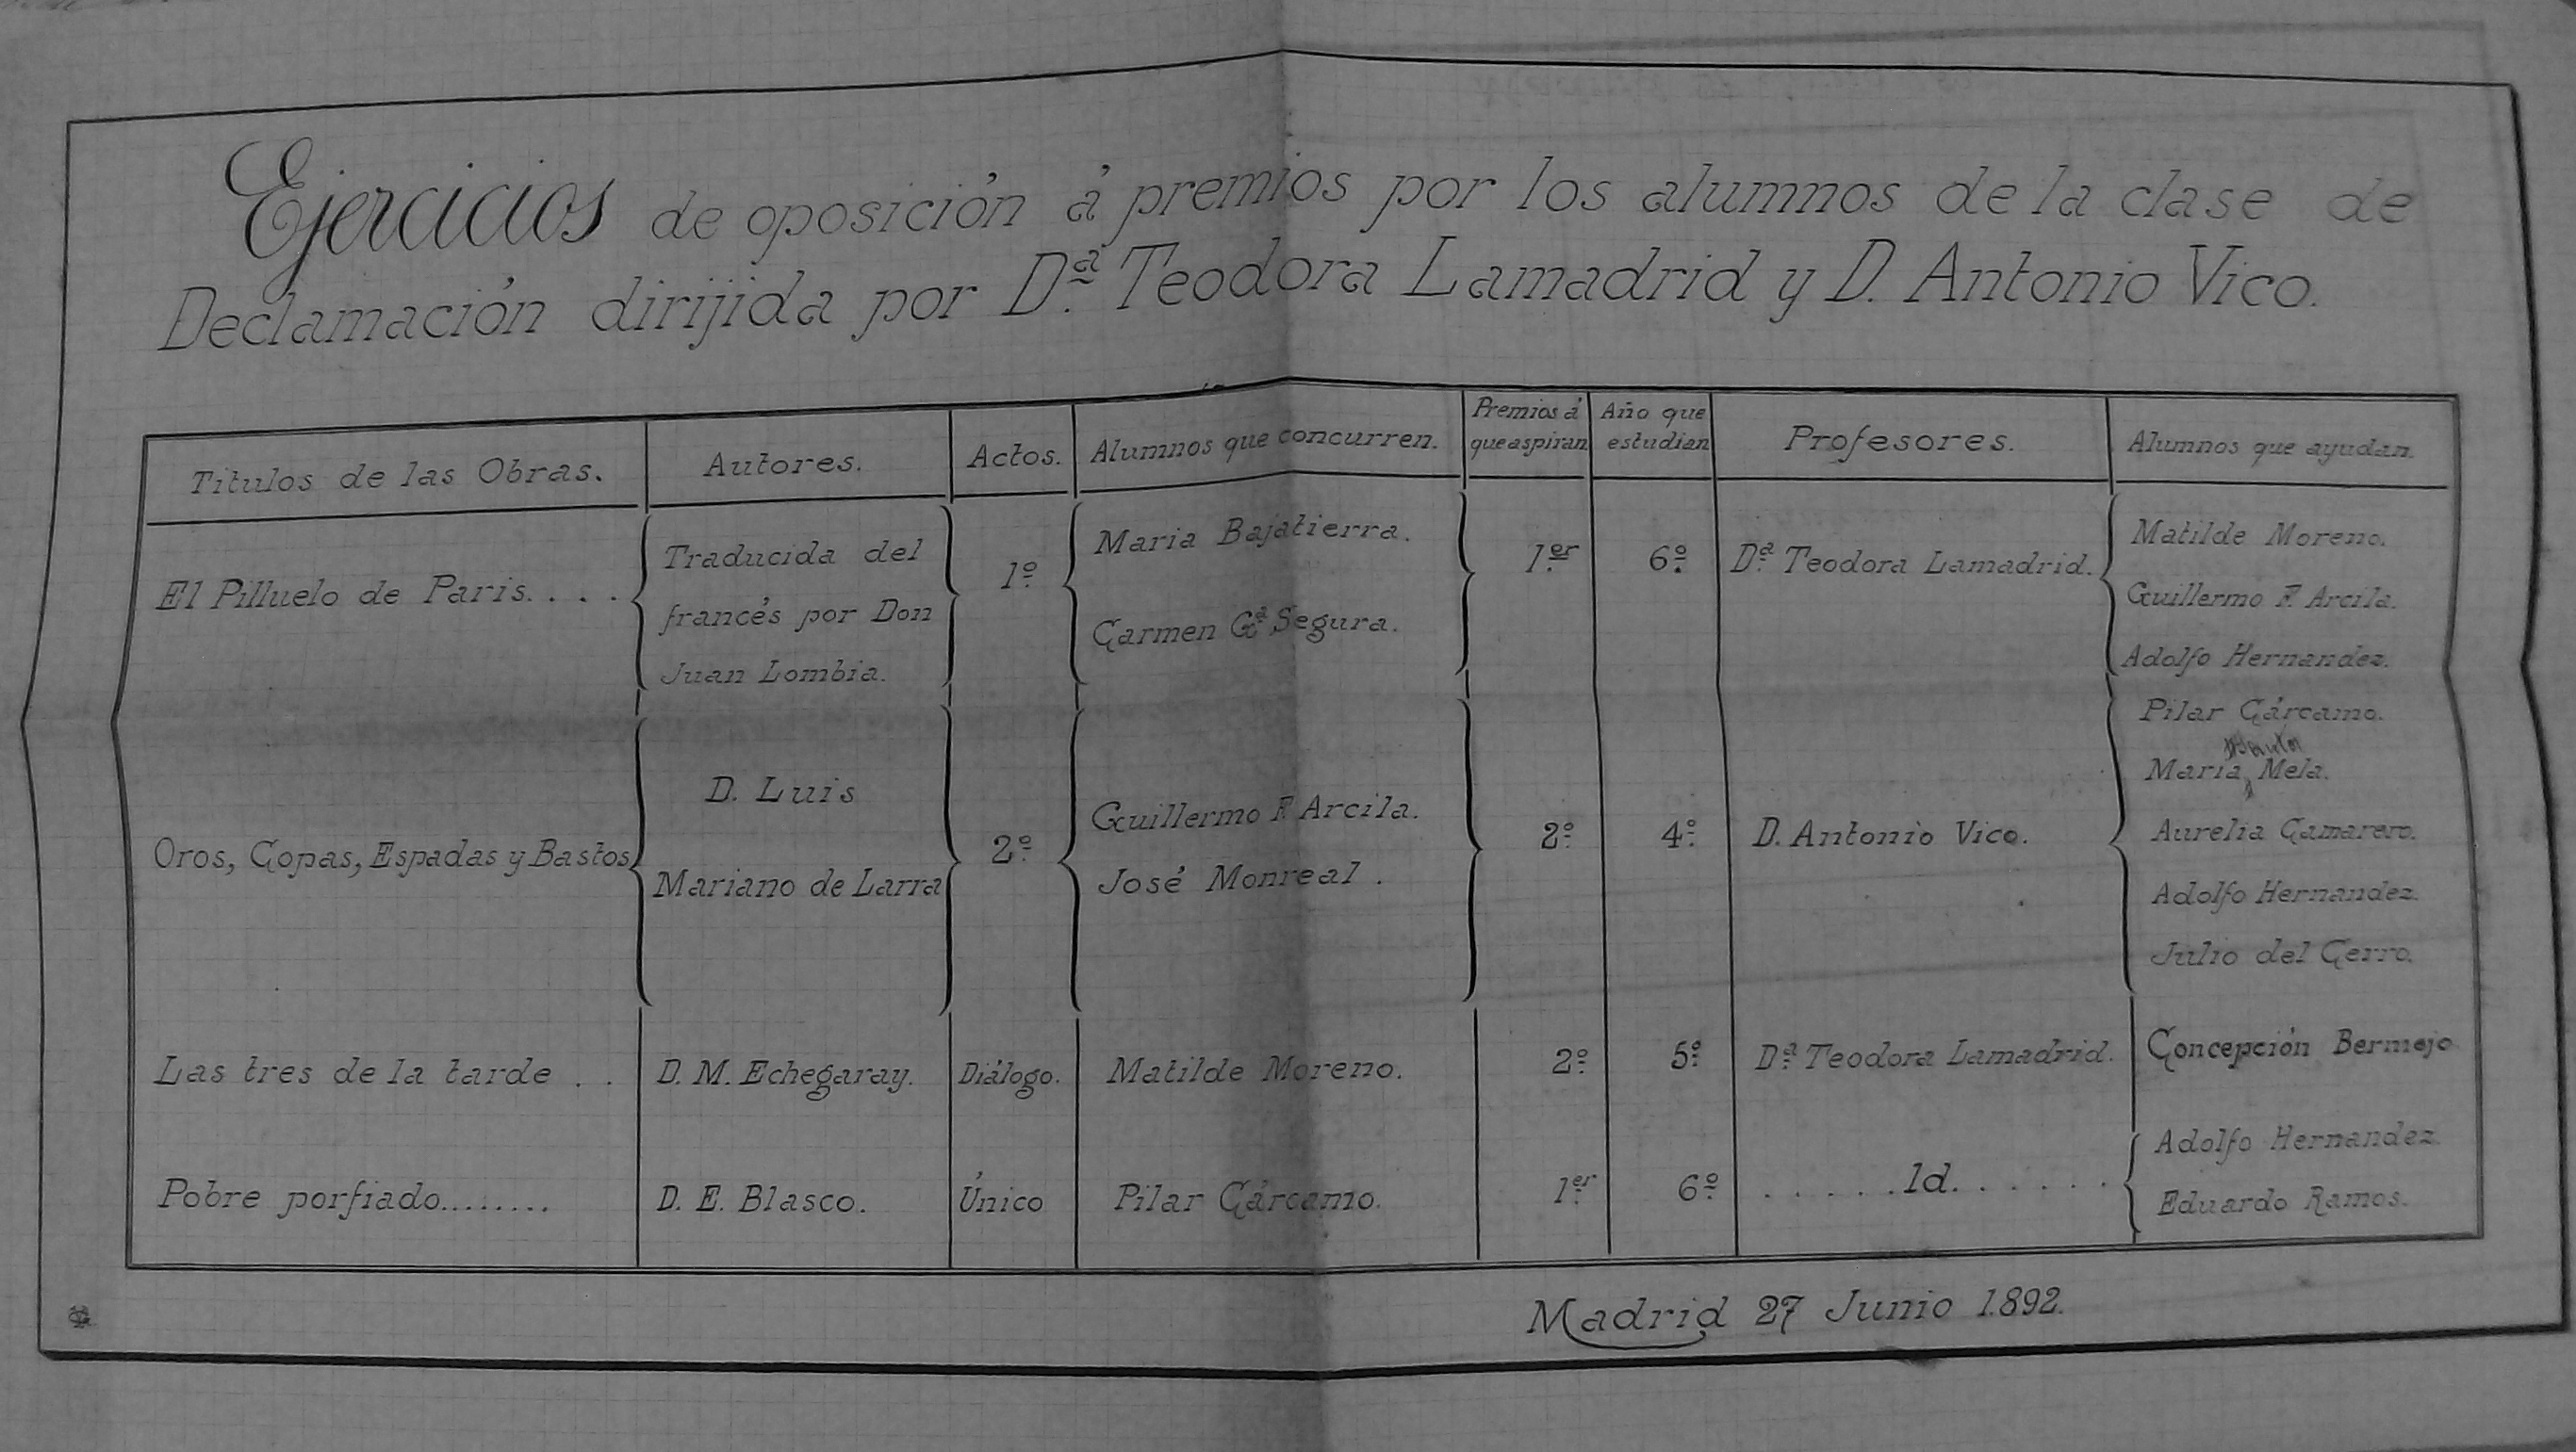 Ejercicios de oposición á premios por los alumnos de la clase de
Declamación dirijida por D.ª Teodora Lamadrid y D. Antonio Vico.
Titulos de las Obras.
Autores.
Actos.
Alumnos que concurren.
Premios á
que aspiran
Año que
estudian
Profesores.
Alumnos que ayudan
El Pilluelo de Paris. . . .
Traducida del
francés por Don
Juan Lombia.
1.º
Maria Bajatierra.
Carmen G.ª Segura.
1.er
6.º
D.ª Teodora Lamadrid.
Matilde Moreno.
Guillermo F. Arcila.
Adolfo Hernandez.
Oros, Copas, Espadas y Bastos
D. Luis
Mariano de Larra
2.º
Guillermo F. Arcila.
José Monreal.
2.º
4.º
D. Antonio Vico.
Pilar Cárcamo.
Maria Mela.
Aurelia Camarero.
Adolfo Hernandez.
Julio del Cerro.
Las tres de la tarde . .
D. M. Echegaray.
Diálogo.
Matilde Moreno.
2.º
5.º
D.ª Teodora Lamadrid.
Concepción Bermejo
Pobre porfiado........
D. E. Blasco.
Único
Pilar Cárcamo.
1.er
6.º
. . . . . Id. . . . . . .
Adolfo Hernandez
Eduardo Ramos.
Madrid 27 Junio 1.892.